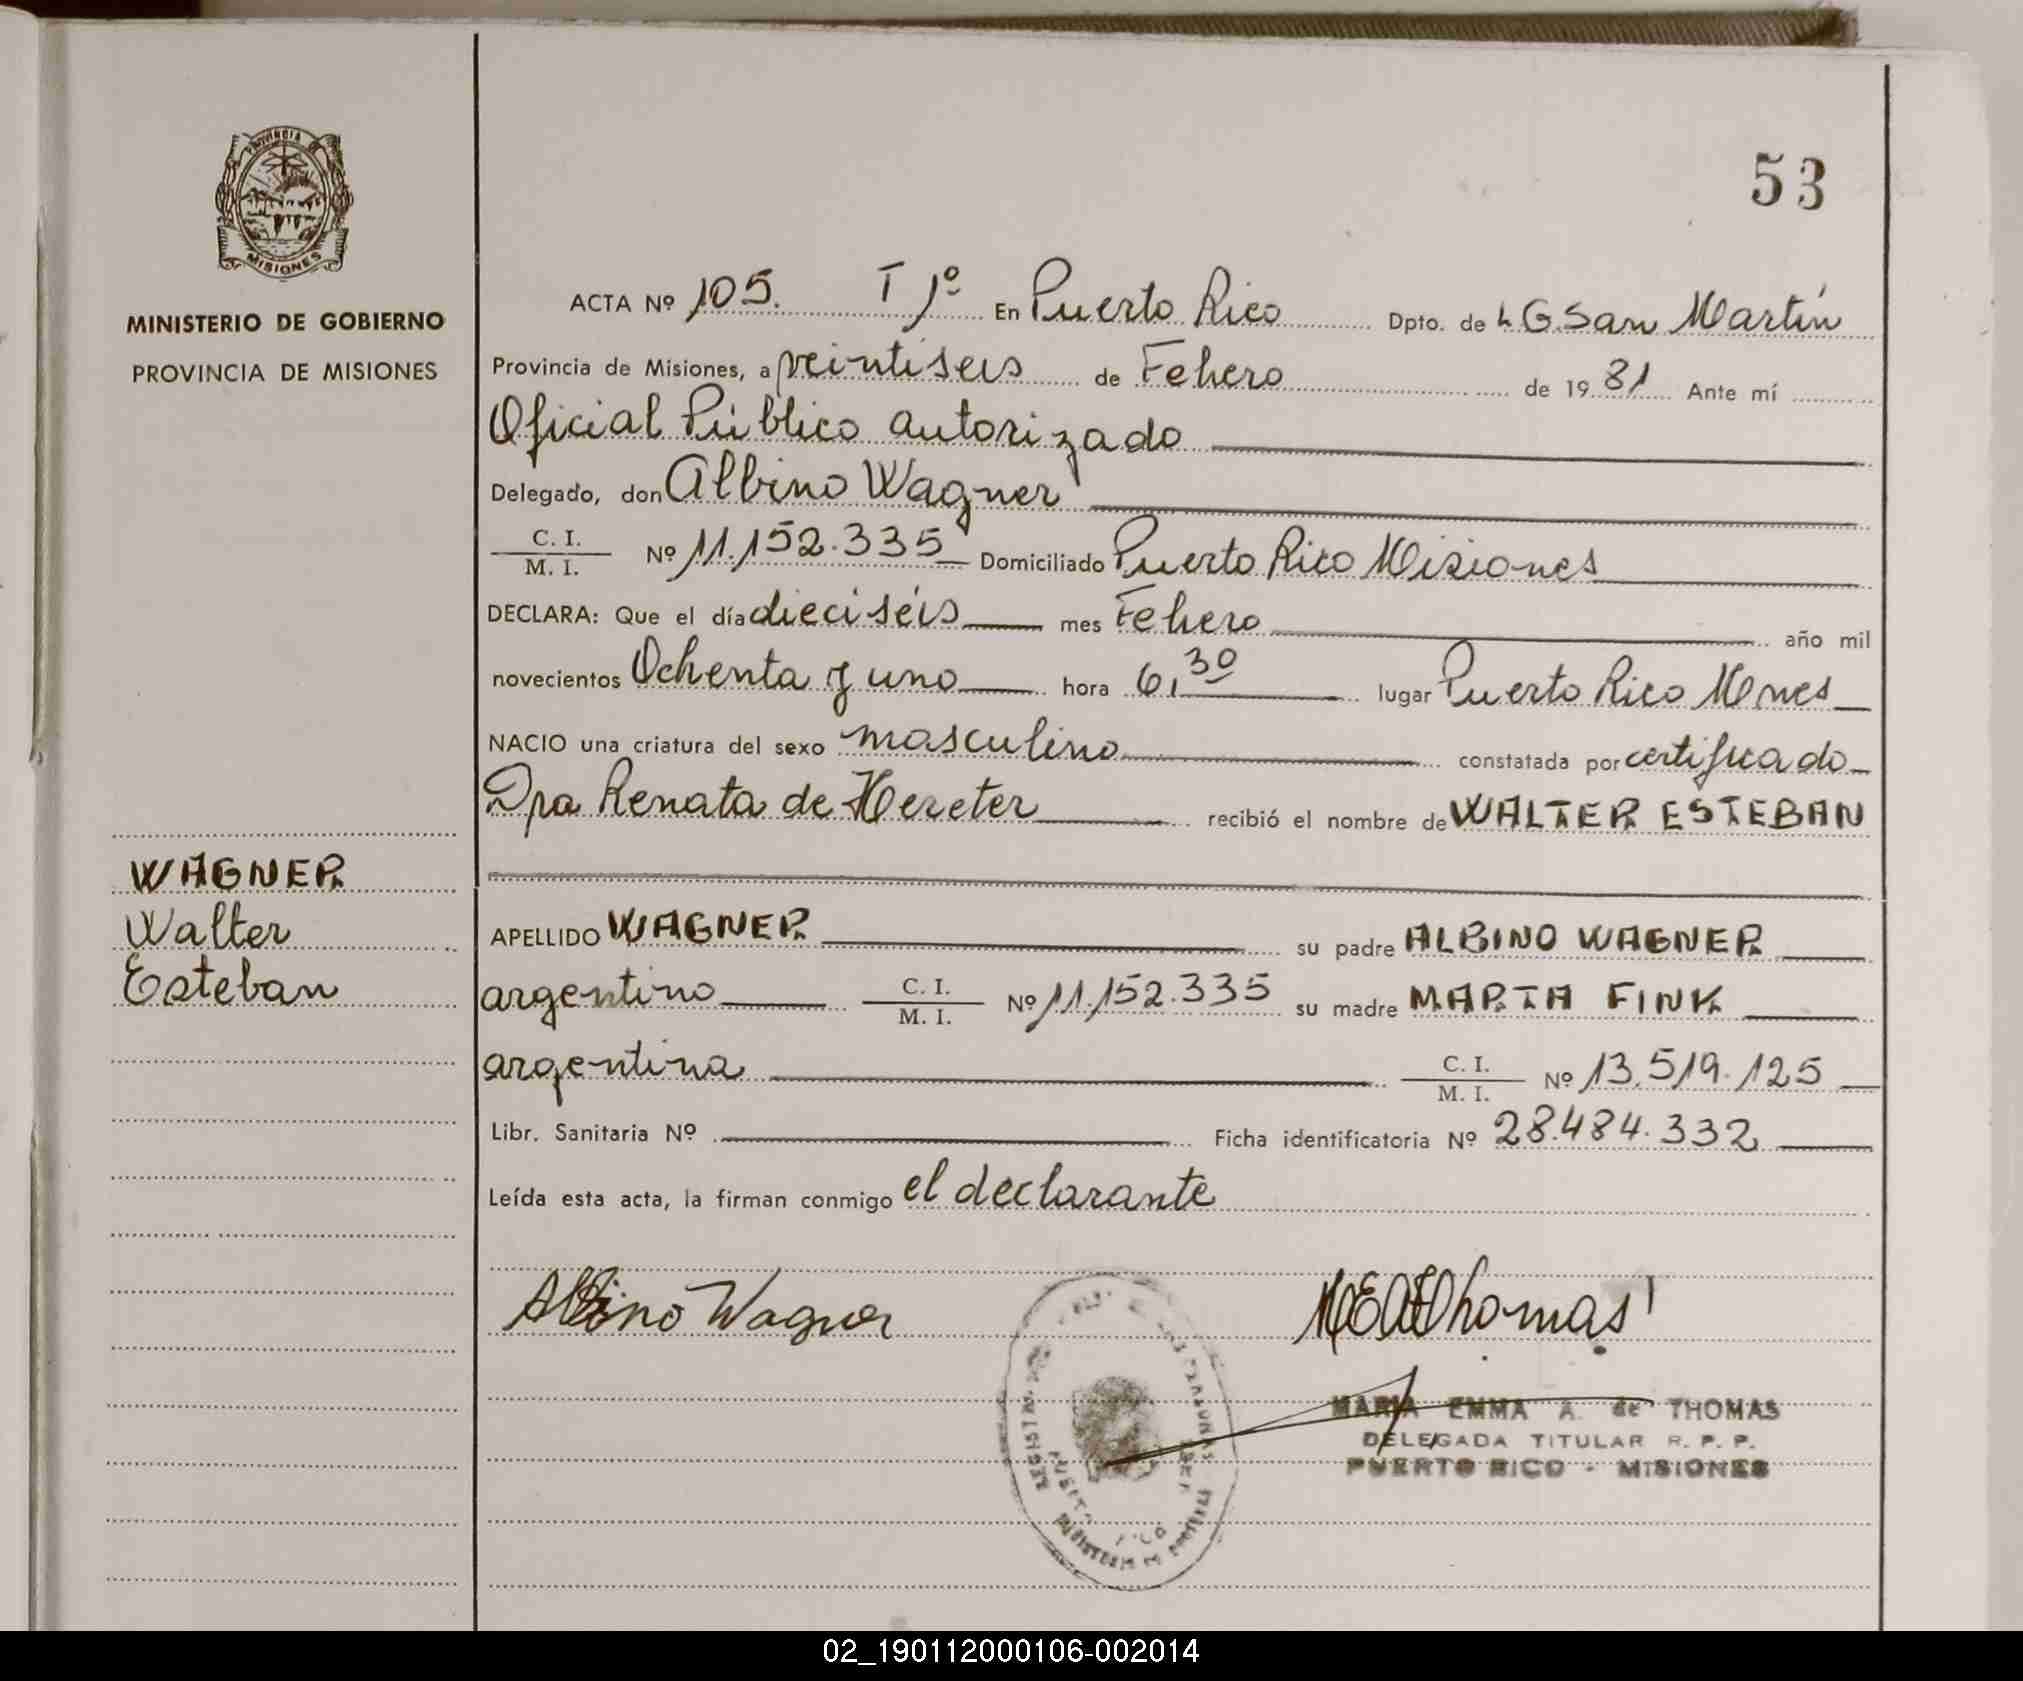 53
PROVINCIA
MISIONES
MINISTERIO DE GOBIERNO
PROVINCIA DE MISIONES
ACTA Nº 105. T 1º En Puerto Rico Dpto. de L G. San Martín
Provincia de Misiones, a veintiseis de Febrero de 1981 Ante mí
Oficial Público autorizado
Delegado, don Albino Wagner
C. I.
M. I. Nº 11.152.335 Domiciliado Puerto Rico Misiones
DECLARA: Que el día dieciséis mes Febrero año mil
novecientos Ochenta y uno hora 6,30 lugar Puerto Rico Mnes
NACIO una criatura del sexo masculino constatada por certificado
Dra Renata de Hereter recibió el nombre de WALTER ESTEBAN
WAGNER
Walter
Esteban
APELLIDO WAGNER su padre ALBINO WAGNER
argentino C. I.
M. I. Nº 11.152.335 su madre MARTA FINK
argentina C. I.
M. I. Nº 13.519.125
Libr. Sanitaria Nº Ficha identificatoria Nº 28.484.332
Leída esta acta, la firman conmigo el declarante
Albino Wagner
MEAThomas
MARIA EMMA A. de THOMAS
DELEGADA TITULAR R. P. P.
PUERTO RICO - MISIONES
02_190112000106-002014